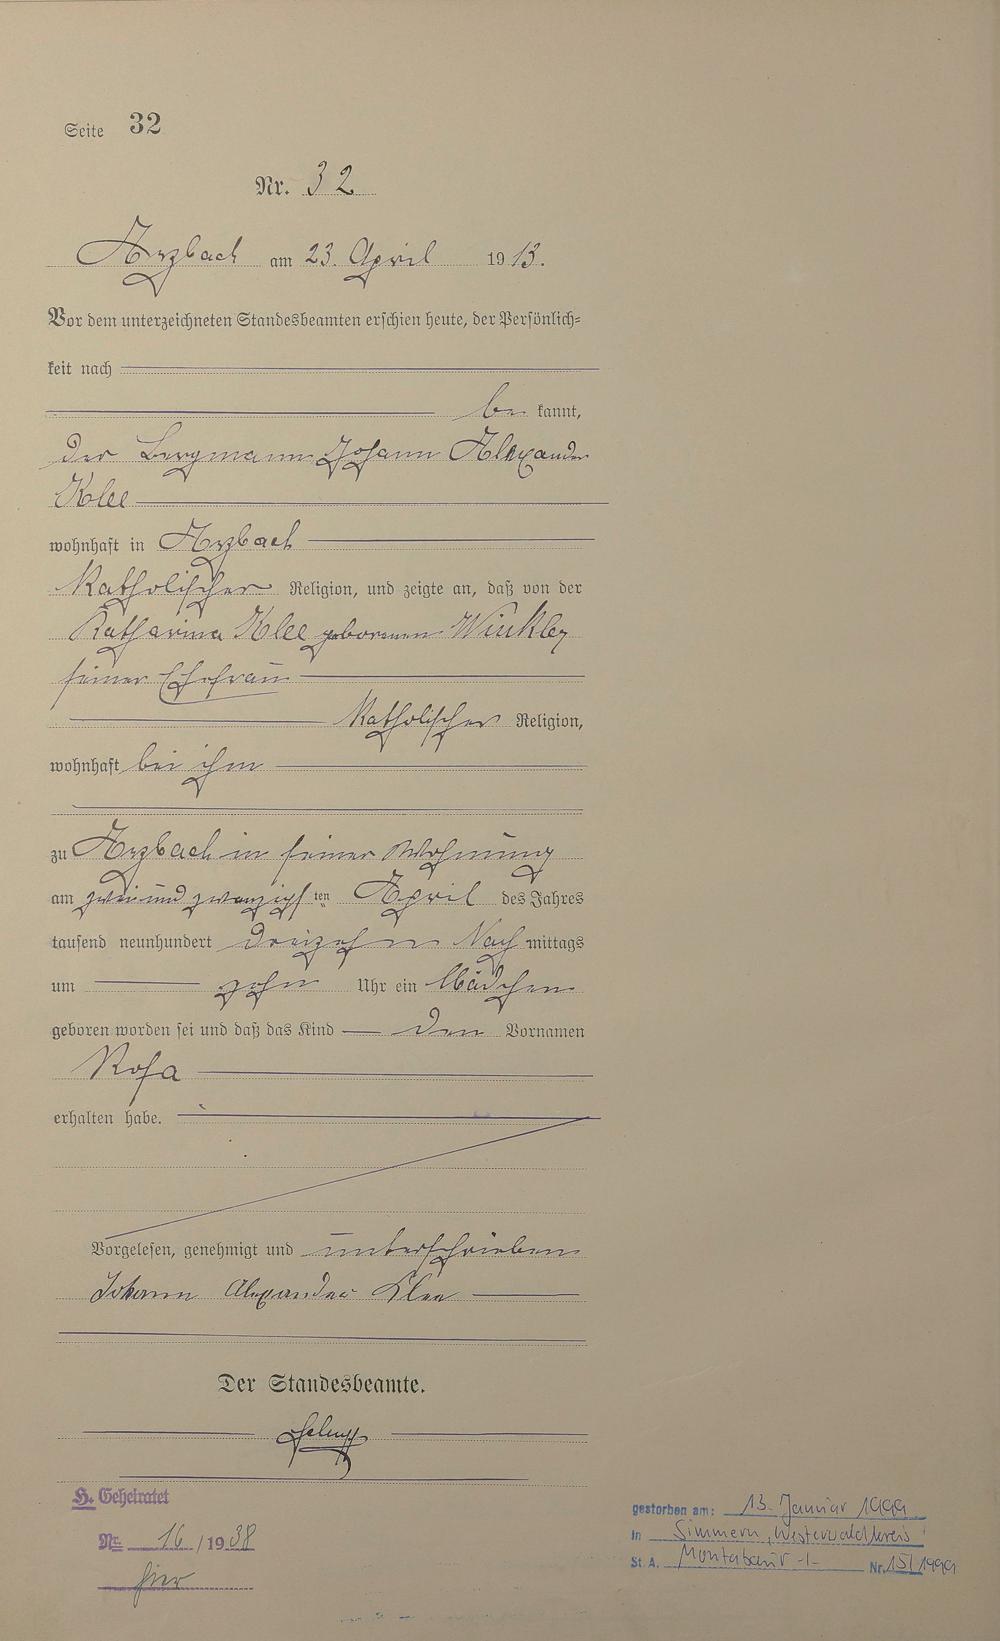 Seite 32
Nr. 32
Arzbach am 23. April 1913.
Vor dem unterzeichneten Standesbeamten erschien heute, der Persönlich=
keit nach
be kannt,
der Bergmann Johann Alexander
Klee
wohnhaft in Arzbach
Katholischer Religion, und zeigte an, daß von der
Katharina Klee geborenen Winkler
seiner Ehefrau
Katholischer Religion,
wohnhaft bei ihm
zu Arzbach in seiner Wohnung
am zwei und zwanzigsten April des Jahres
tausend neunhundert dreizehn Nach mittags
um zehn Uhr ein Mädchen
geboren worden sei und daß das Kind den Vornamen
Rosa
erhalten habe.
Vorgelesen, genehmigt und unterschrieben
Johann Alexander Klee
Der Standesbeamte.
H. Geheiratet
Nr. 16 / 1938
hier
gestorben am: 13. Januar 1999
in Simmern, Westerwaldkreis
St. A. Montabaur -1- Nr. 15/1999